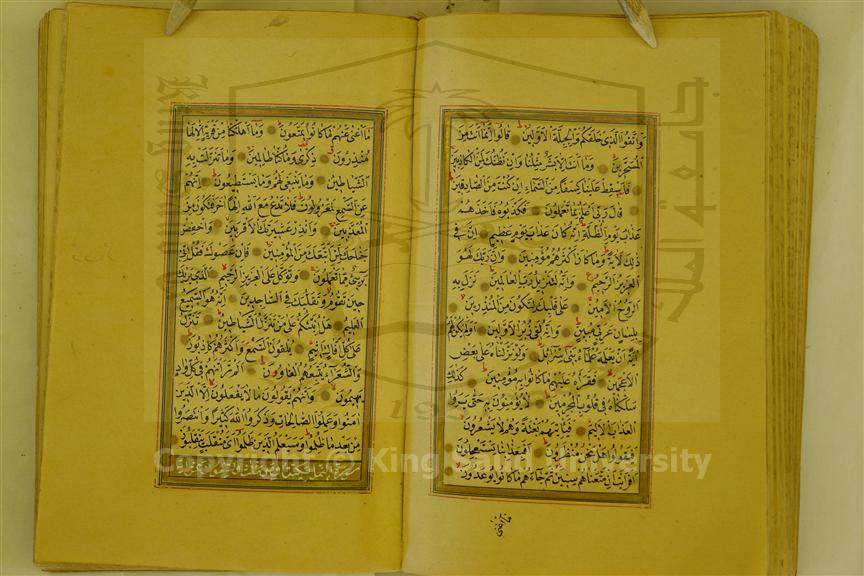 وَاتَّقُوا الَّذِي خَلَقَكُمْ وَالْجِبِلَّةَ الْأَوَّلِينَ قَالُوا إِنَّمَا أَنْتَ مِنَ
الْمُسَحَّرِينَ وَمَا أَنْتَ إِلَّا بَشَرٌ مِثْلُنَا وَإِنْ نَظُنُّكَ لَمِنَ الْكَاذِبِينَ
فَأَسْقِطْ عَلَيْنَا كِسَفًا مِنَ السَّمَاءِ إِنْ كُنْتَ مِنَ الصَّادِقِينَ
قَالَ رَبِّي أَعْلَمُ بِمَا تَعْمَلُونَ فَكَذَّبُوهُ فَأَخَذَهُمْ
عَذَابُ يَوْمِ الظُّلَّةِ إِنَّهُ كَانَ عَذَابَ يَوْمٍ عَظِيمٍ إِنَّ فِي
ذَلِكَ لَآيَةً وَمَا كَانَ أَكْثَرُهُمْ مُؤْمِنِينَ وَإِنَّ رَبَّكَ لَهُوَ
الْعَزِيزُ الرَّحِيمُ وَإِنَّهُ لَتَنْزِيلُ رَبِّ الْعَالَمِينَ نَزَلَ بِهِ
الرُّوحُ الْأَمِينُ عَلَى قَلْبِكَ لِتَكُونَ مِنَ الْمُنْذِرِينَ
بِلِسَانٍ عَرَبِيٍّ مُبِينٍ وَإِنَّهُ لَفِي زُبُرِ الْأَوَّلِينَ أَوَلَمْ يَكُنْ لَهُمْ
آيَةً أَنْ يَعْلَمَهُ عُلَمَاءُ بَنِي إِسْرَائِيلَ وَلَوْ نَزَّلْنَاهُ عَلَى بَعْضِ
الْأَعْجَمِينَ فَقَرَأَهُ عَلَيْهِمْ مَا كَانُوا بِهِ مُؤْمِنِينَ كَذَلِكَ
سَلَكْنَاهُ فِي قُلُوبِ الْمُجْرِمِينَ لَا يُؤْمِنُونَ بِهِ حَتَّى يَرَوُا
الْعَذَابَ الْأَلِيمَ فَيَأْتِيَهُمْ بَغْتَةً وَهُمْ لَا يَشْعُرُونَ
فَيَقُولُوا هَلْ نَحْنُ مُنْظَرُونَ أَفَبِعَذَابِنَا يَسْتَعْجِلُونَ
أَفَرَأَيْتَ إِنْ مَتَّعْنَاهُمْ سِنِينَ ثُمَّ جَاءَهُمْ مَا كَانُوا يُوعَدُونَ
مَا أَغْنَى
مَا أَغْنَى عَنْهُمْ مَا كَانُوا يُمَتَّعُونَ وَمَا أَهْلَكْنَا مِنْ قَرْيَةٍ إِلَّا لَهَا
مُنْذِرُونَ ذِكْرَى وَمَا كُنَّا ظَالِمِينَ وَمَا تَنَزَّلَتْ بِهِ
الشَّيَاطِينُ وَمَا يَنْبَغِي لَهُمْ وَمَا يَسْتَطِيعُونَ إِنَّهُمْ
عَنِ السَّمْعِ لَمَعْزُولُونَ فَلَا تَدْعُ مَعَ اللَّهِ إِلَهًا آخَرَ فَتَكُونَ مِنَ
الْمُعَذَّبِينَ وَأَنْذِرْ عَشِيرَتَكَ الْأَقْرَبِينَ وَاخْفِضْ
جَنَاحَكَ لِمَنِ اتَّبَعَكَ مِنَ الْمُؤْمِنِينَ فَإِنْ عَصَوْكَ فَقُلْ إِنِّي
بَرِيءٌ مِمَّا تَعْمَلُونَ وَتَوَكَّلْ عَلَى الْعَزِيزِ الرَّحِيمِ الَّذِي يَرَاكَ
حِينَ تَقُومُ وَتَقَلُّبَكَ فِي السَّاجِدِينَ إِنَّهُ هُوَ السَّمِيعُ
الْعَلِيمُ هَلْ أُنَبِّئُكُمْ عَلَى مَنْ تَنَزَّلُ الشَّيَاطِينُ تَنَزَّلُ
عَلَى كُلِّ أَفَّاكٍ أَثِيمٍ يُلْقُونَ السَّمْعَ وَأَكْثَرُهُمْ كَاذِبُونَ
وَالشُّعَرَاءُ يَتَّبِعُهُمُ الْغَاوُونَ أَلَمْ تَرَ أَنَّهُمْ فِي كُلِّ وَادٍ
يَهِيمُونَ وَأَنَّهُمْ يَقُولُونَ مَا لَا يَفْعَلُونَ إِلَّا الَّذِينَ
آمَنُوا وَعَمِلُوا الصَّالِحَاتِ وَذَكَرُوا اللَّهَ كَثِيرًا وَانْتَصَرُوا
مِنْ بَعْدِ مَا ظُلِمُوا وَسَيَعْلَمُ الَّذِينَ ظَلَمُوا أَيَّ مُنْقَلَبٍ يَنْقَلِبُونَ
Copyright © King Saud University